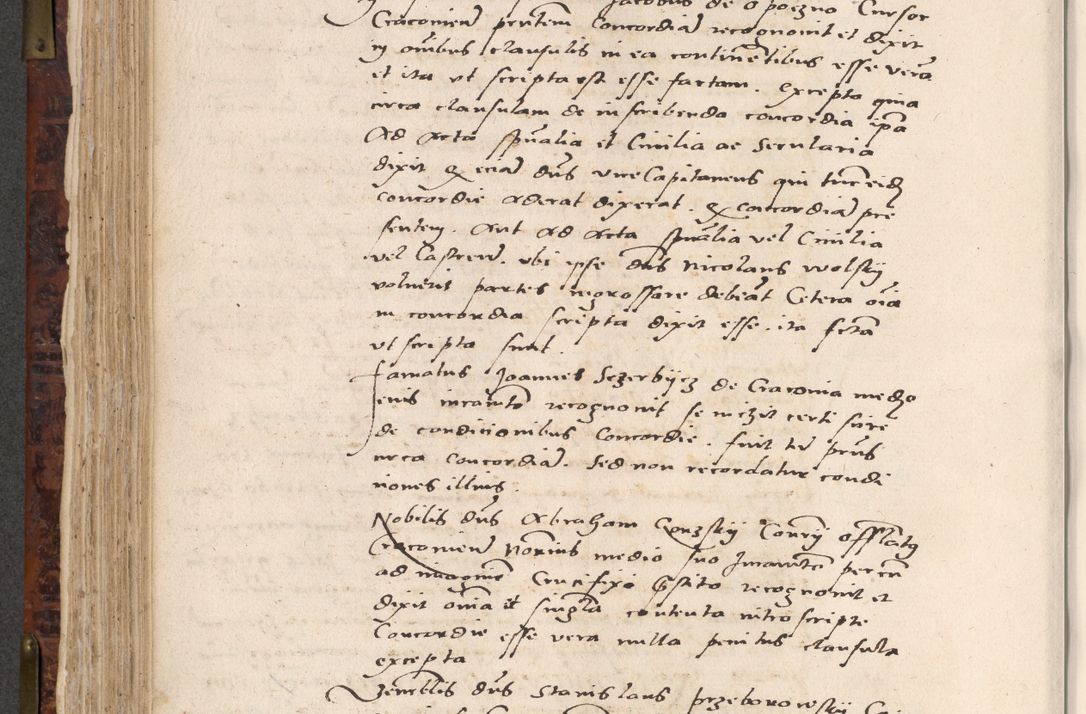 Jacobus de Opoczno Cursor
Cracovien prntem Concordia recognovit et dixit
in omibus clausulis in ea continentibus esse vera
et ita ut scripta est esse factam. Excepto quia
circa clausulam de inscribenda concordia ipa
Ad Acta Spualia et Civilia ac Secularia
dixit q ecia dns viceCapitaneus qui tunc eid
concordie aderat dixerat. q concordia pre
sentem. Aut ad Acta spualia vel Civilia
vel Castren. ubi ipse dns Nicolaus Wolsky
voluerit partes ingrossare debeat Cetera oia
in concordia scripta dixit esse. ita fcta
ut scripta sunt.
Famatus Joannes Sczerbycz de Cracovia medio
recognovit se certi
de condicionibus Concordie. fuit tn prns
circa Concordia. Sed non recordatur condi
iones illius.
Nobilis dns Abraham
Cracovien Notrius medio suo Juramto per
ad imagine Crucifixi recognovit et
dixit omia et singla contenta introscripte
Concordie esse vera nulla penitus clausula
excepta
Venerblis dns Stanislaus Przeborowsky